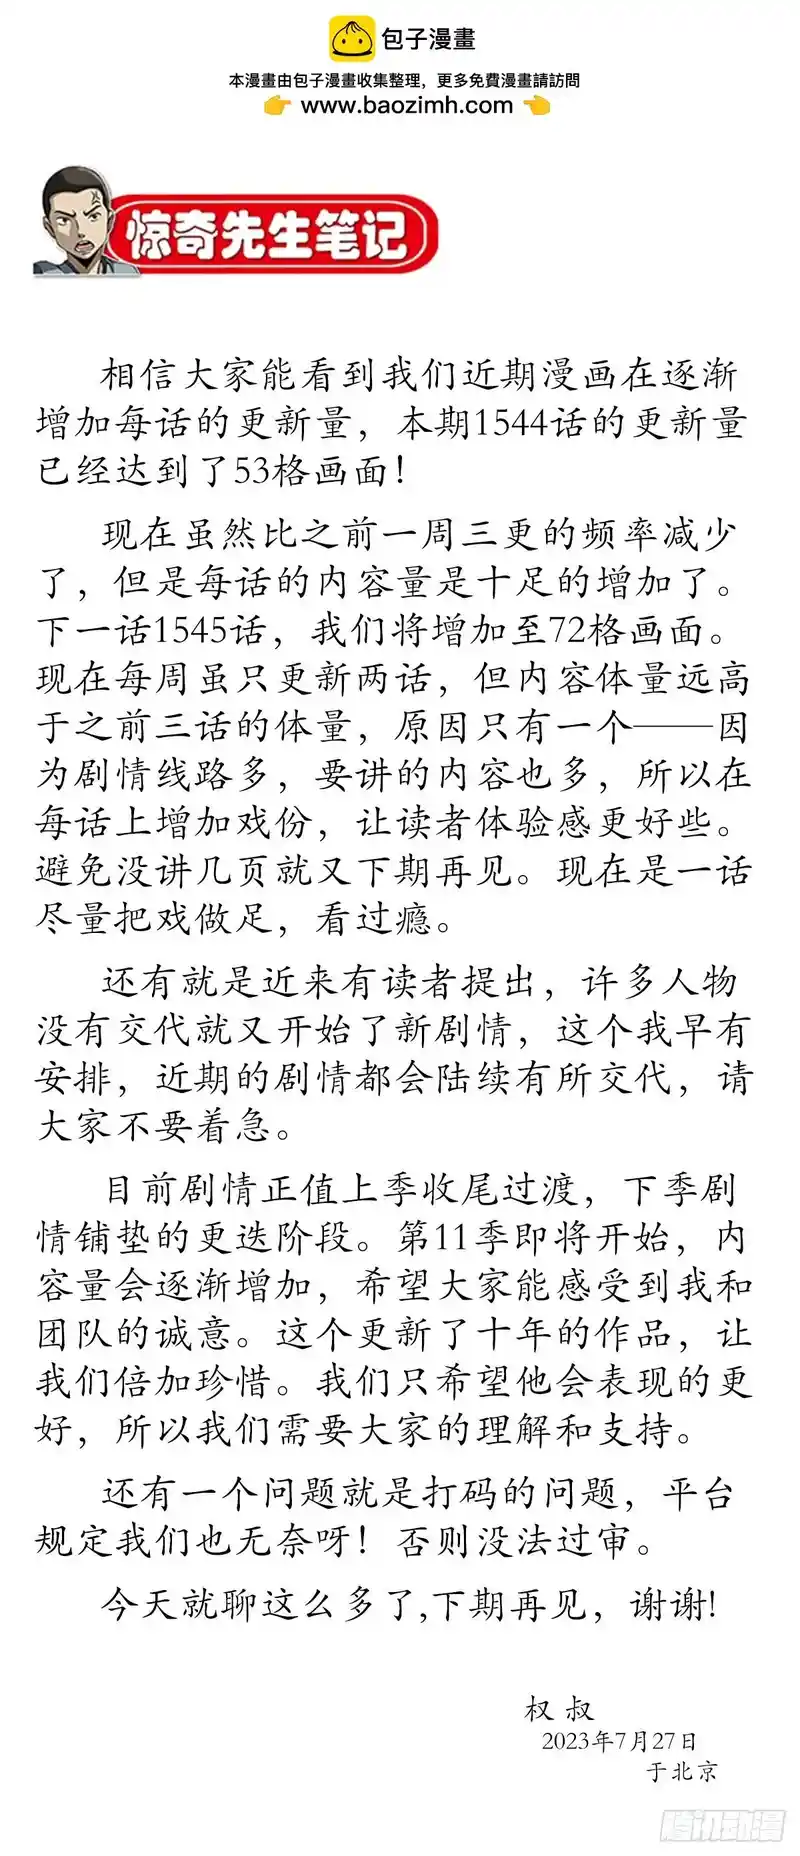 包子漫畫
本漫畫由包子漫畫收集整理，更多免費漫畫請訪問
👉 www.baozimh.com 👈
惊奇先生笔记
相信大家能看到我们近期漫画在逐渐
增加每话的更新量，本期1544话的更新量
已经达到了53格画面！
现在虽然比之前一周三更的频率减少
了，但是每话的内容量是十足的增加了。
下一话1545话，我们将增加至72格画面。
现在每周虽只更新两话，但内容体量远高
于之前三话的体量，原因只有一个——因
为剧情线路多，要讲的内容也多，所以在
每话上增加戏份，让读者体验感更好些。
避免没讲几页就又下期再见。现在是一话
尽量把戏做足，看过瘾。
还有就是近来有读者提出，许多人物
没有交代就又开始了新剧情，这个我早有
安排，近期的剧情都会陆续有所交代，请
大家不要着急。
目前剧情正值上季收尾过渡，下季剧
情铺垫的更迭阶段。第11季即将开始，内
容量会逐渐增加，希望大家能感受到我和
团队的诚意。这个更新了十年的作品，让
我们倍加珍惜。我们只希望他会表现的更
好，所以我们需要大家的理解和支持。
还有一个问题就是打码的问题，平台
规定我们也无奈呀！否则没法过审。
今天就聊这么多了,下期再见，谢谢!
权叔
2023年7月27日
于北京
腾讯动漫